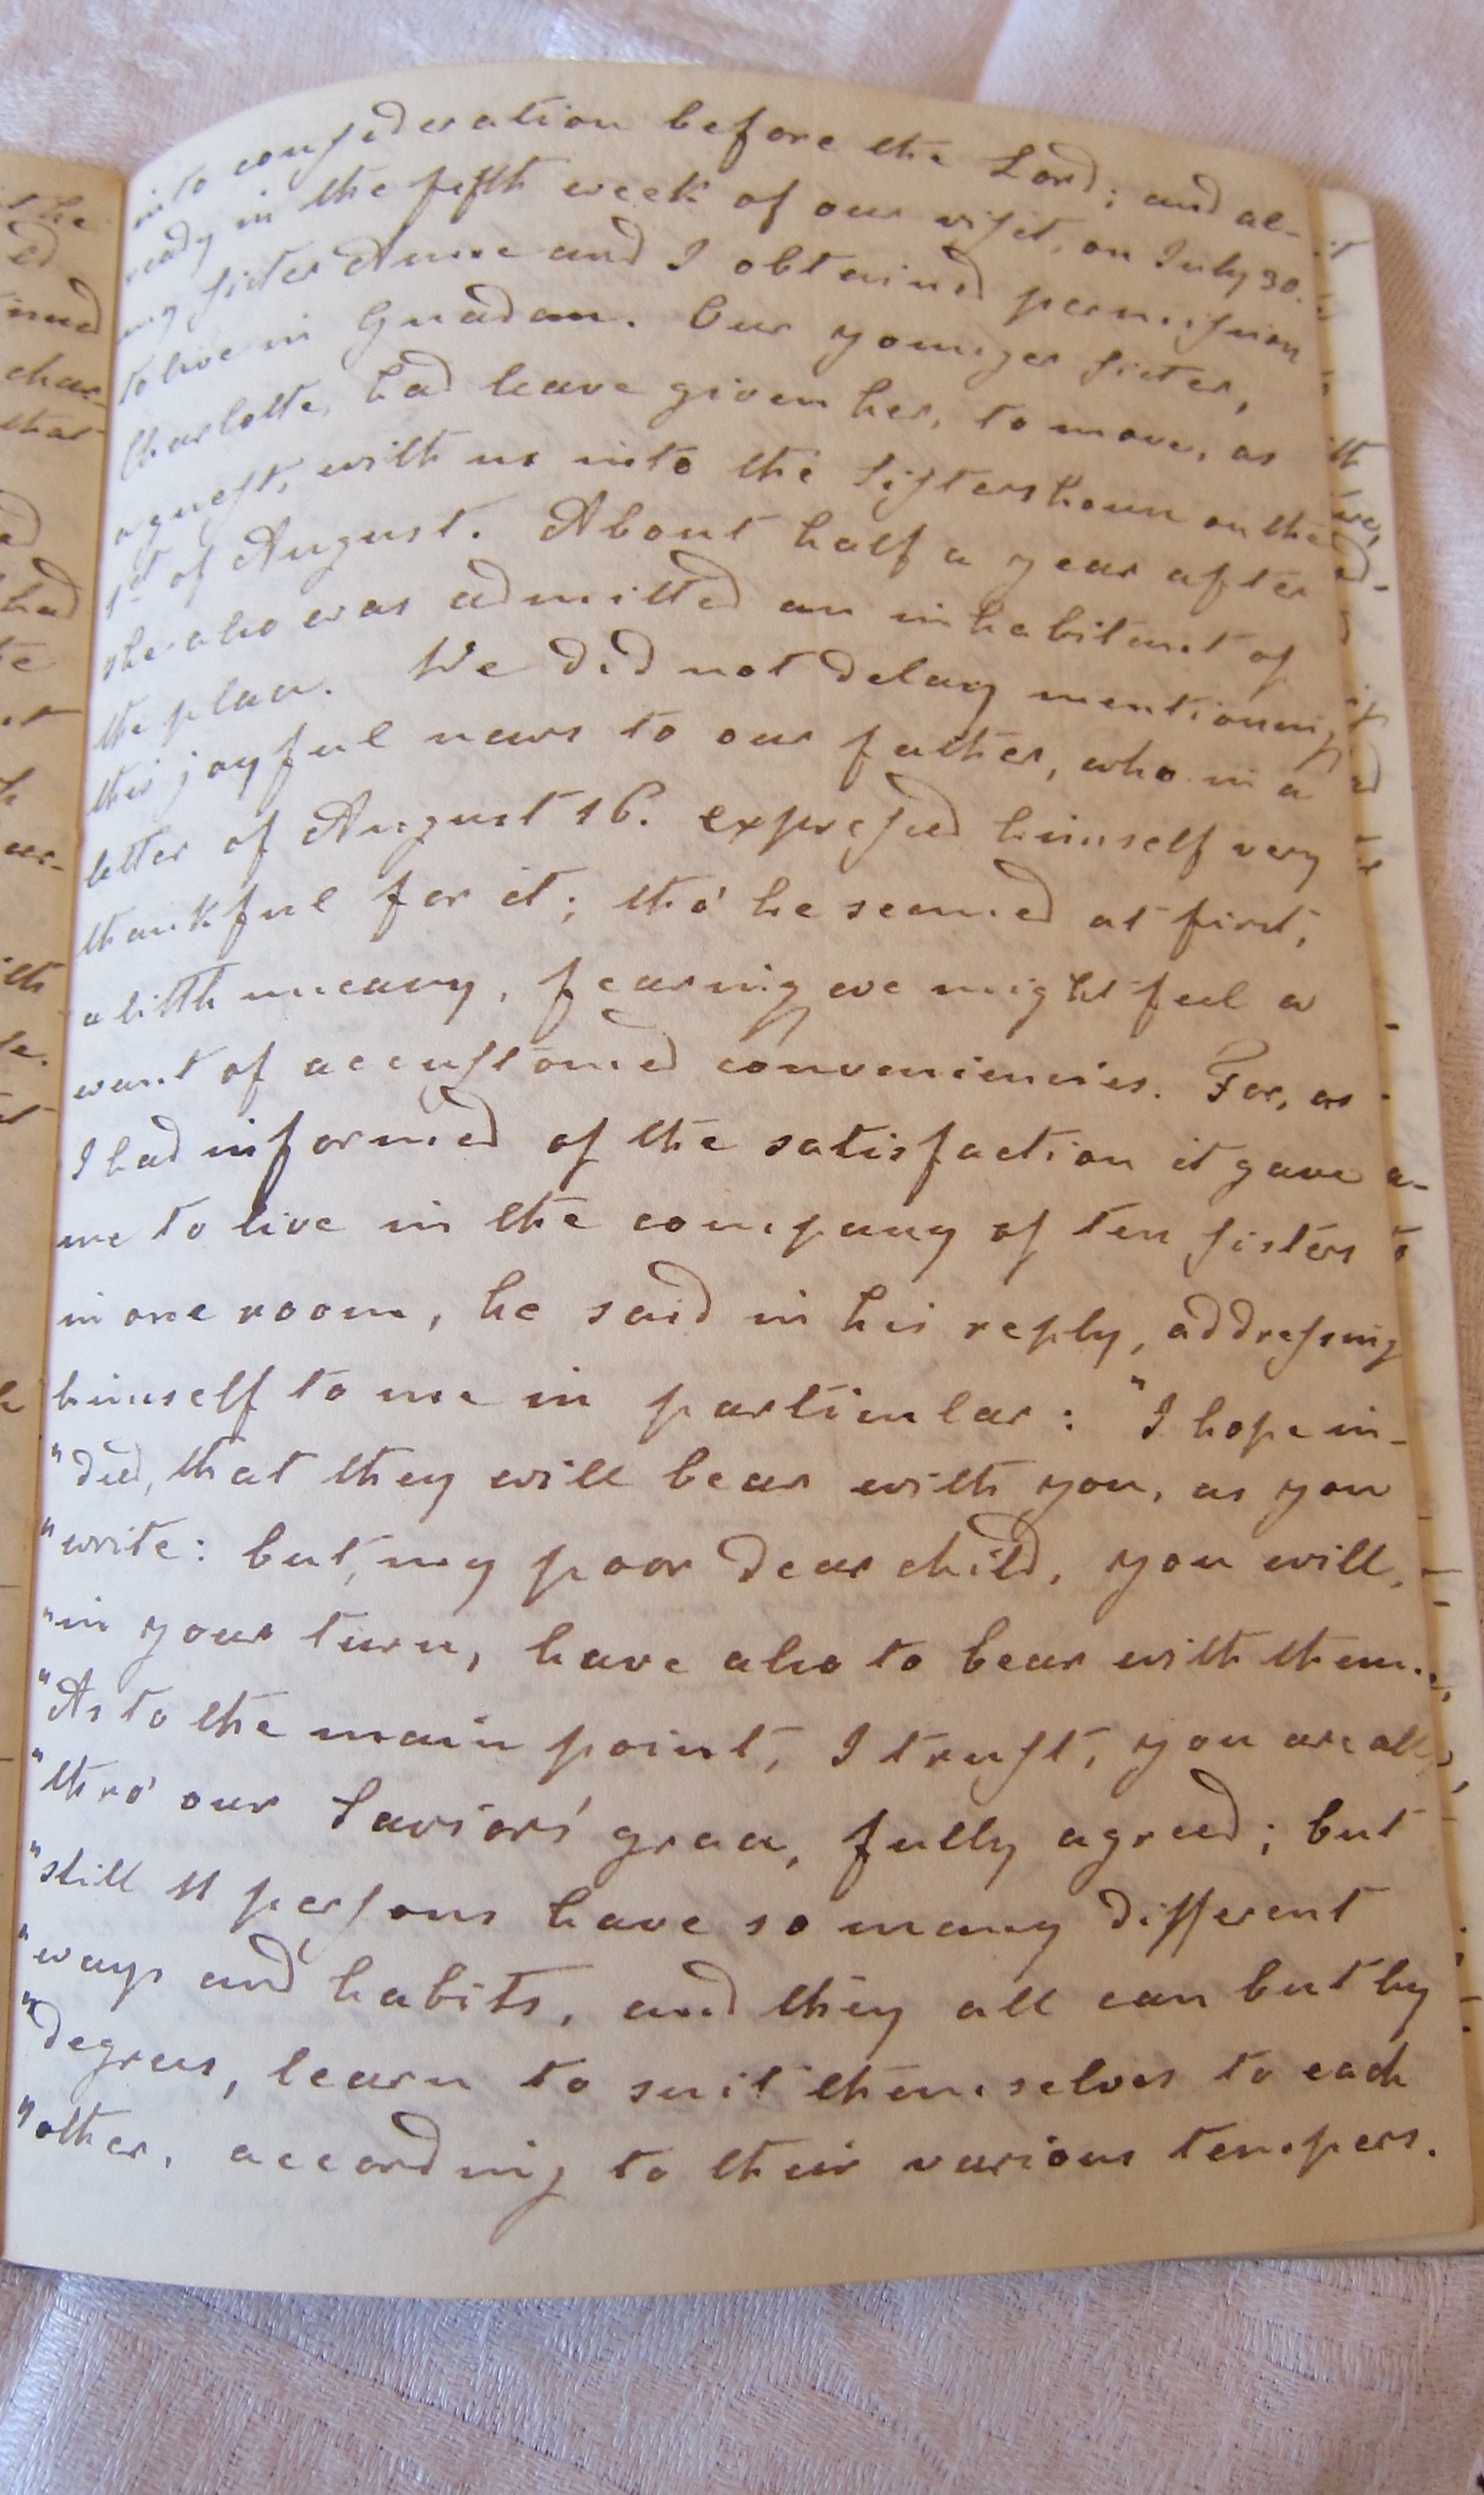 into consideration before the Lord; and al-
ready in the fifth week of our visit, on July 30.
my sister Anne and I obtained permission
to live in Gnadau. Our younger sister,
Charlotte, had leave given her, to move, as
a guest, with us into the Sistershouse on the
1st of August. About half a year after
she also was admitted an inhabitant of
the place. We did not delay mentioning
this joyful news to our father, who in a
letter of August 16. expressed himself very
thankful for it; tho' he seemed at first,
a little uneasy, fearing we might feel a
want of accustomed conveniencies. For, as
I had informed of the satisfaction it gave
me to live in the company of ten sisters
in one room, he said in his reply, addressing
himself to me in particular: "I hope in-
"deed, that they will bear with you, as you
"write: but, my poor dear child, you will,
"in your turn, have also to bear with them.
"As to the main point, I trust, you are all,
"thro' our Saviors' grace, fully agreed; but
"still 11 persons have so many different
"ways and habits, and they all can but by
"degrees, learn to suit themselves to each
"other, according to their various tempers.